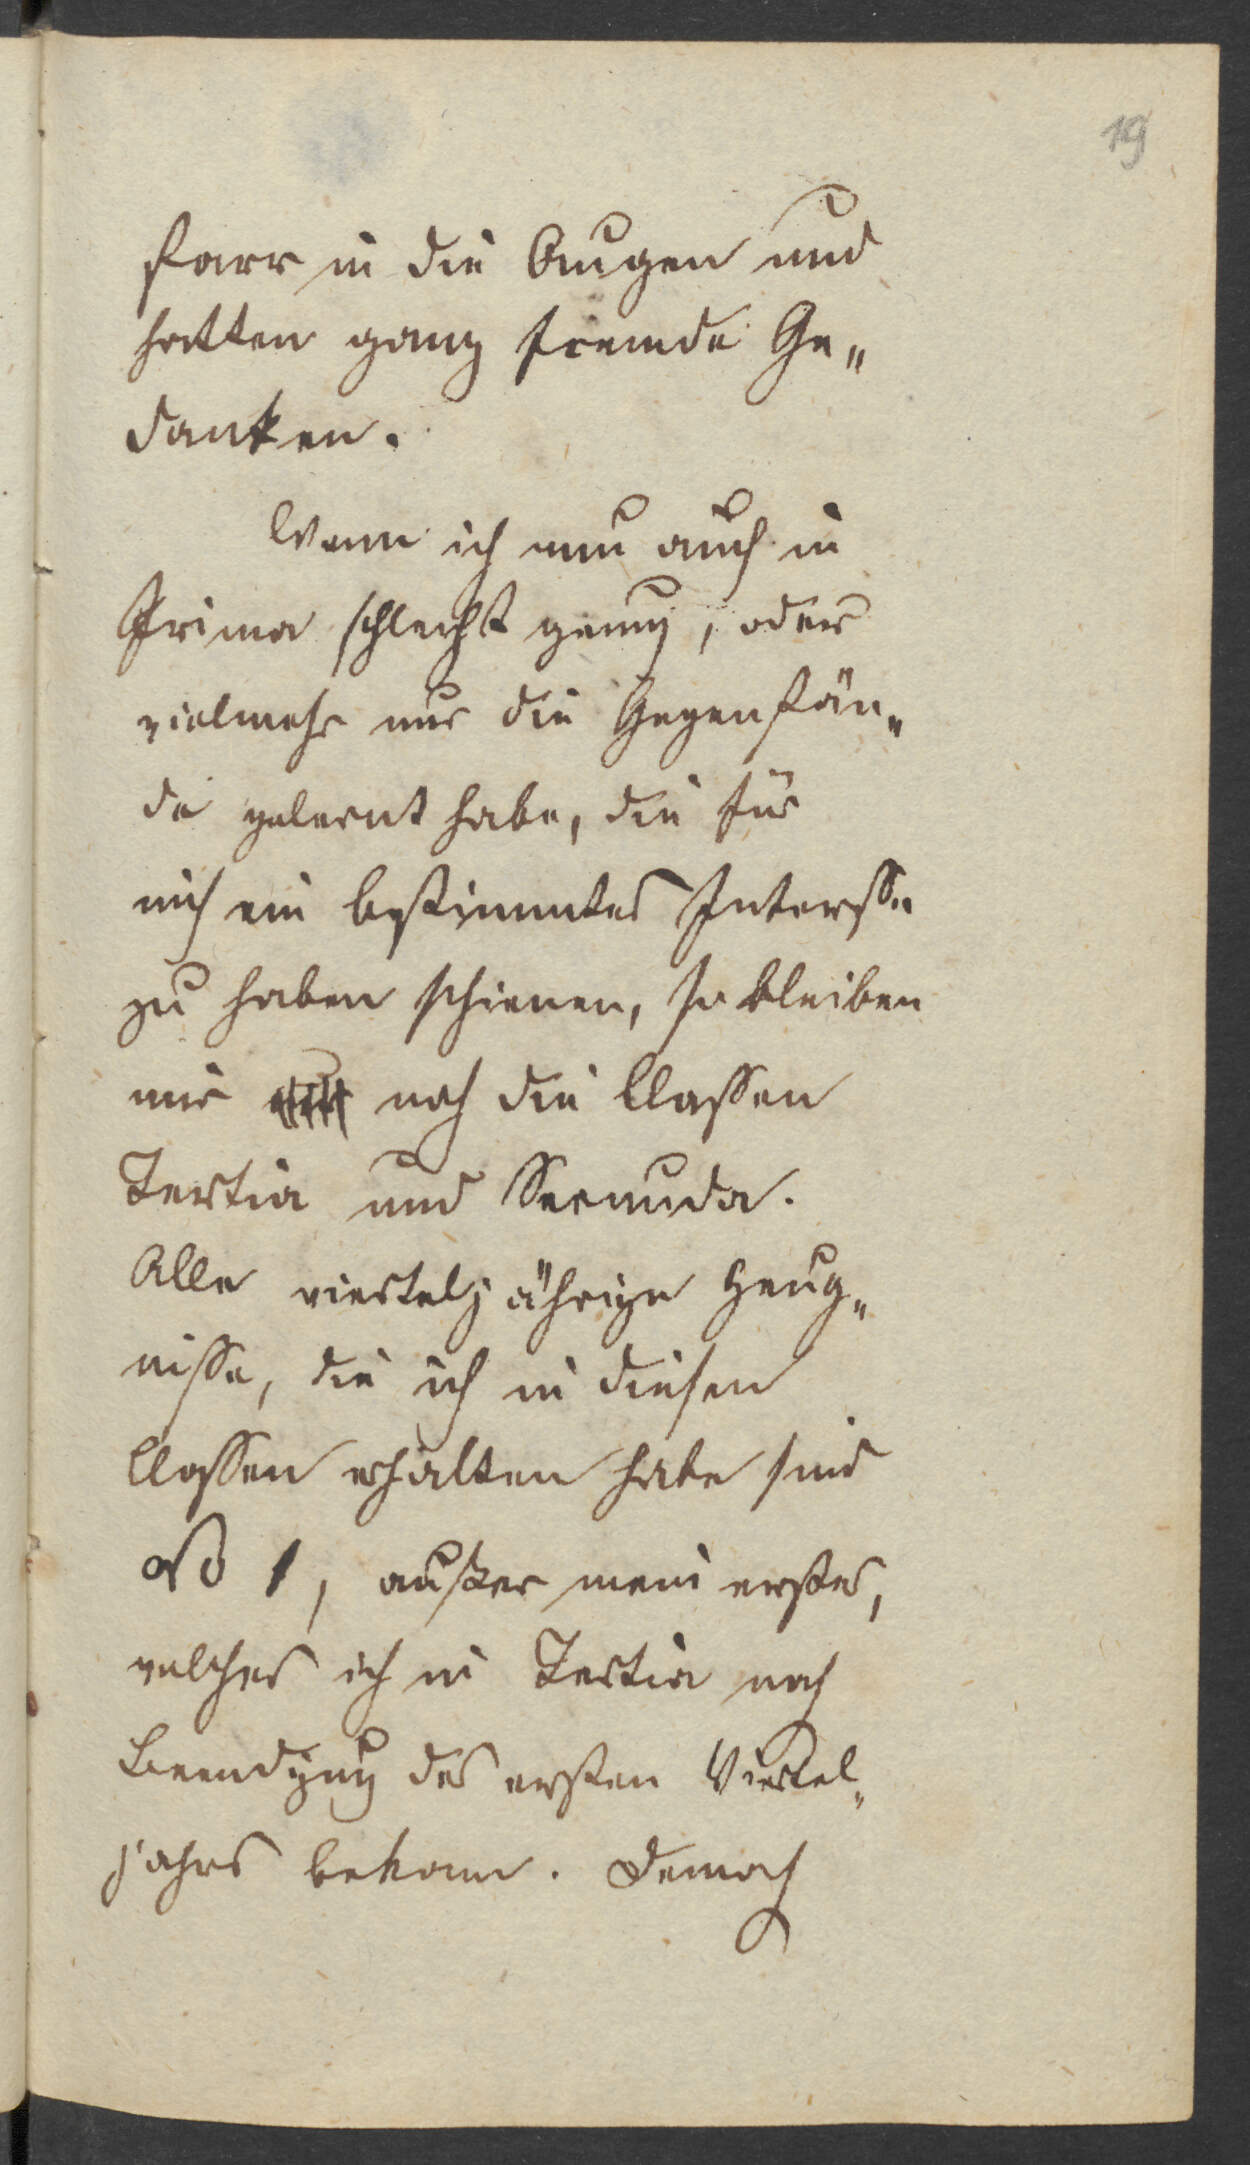 19
starr in die Augen und
hatten ganz fremde Ge„
danken.
Wenn ich nun auch in
Prima schlecht genug, oder
vielmehr nur die Gegenstän„
de gelernt habe, die für
mich ein bestimmtes Interesse
zu haben schienen, so bleiben
mir noch die Classen
Tertia und Secunda.
Alle vierteljährige Zeug„
nisse, die ich in diesen
Classen erhalten habe sind
No 1, außer mein erstes,
welches ich in Tertia nach
Beendigung des ersten Viertel„
jahrs bekam. Demnach